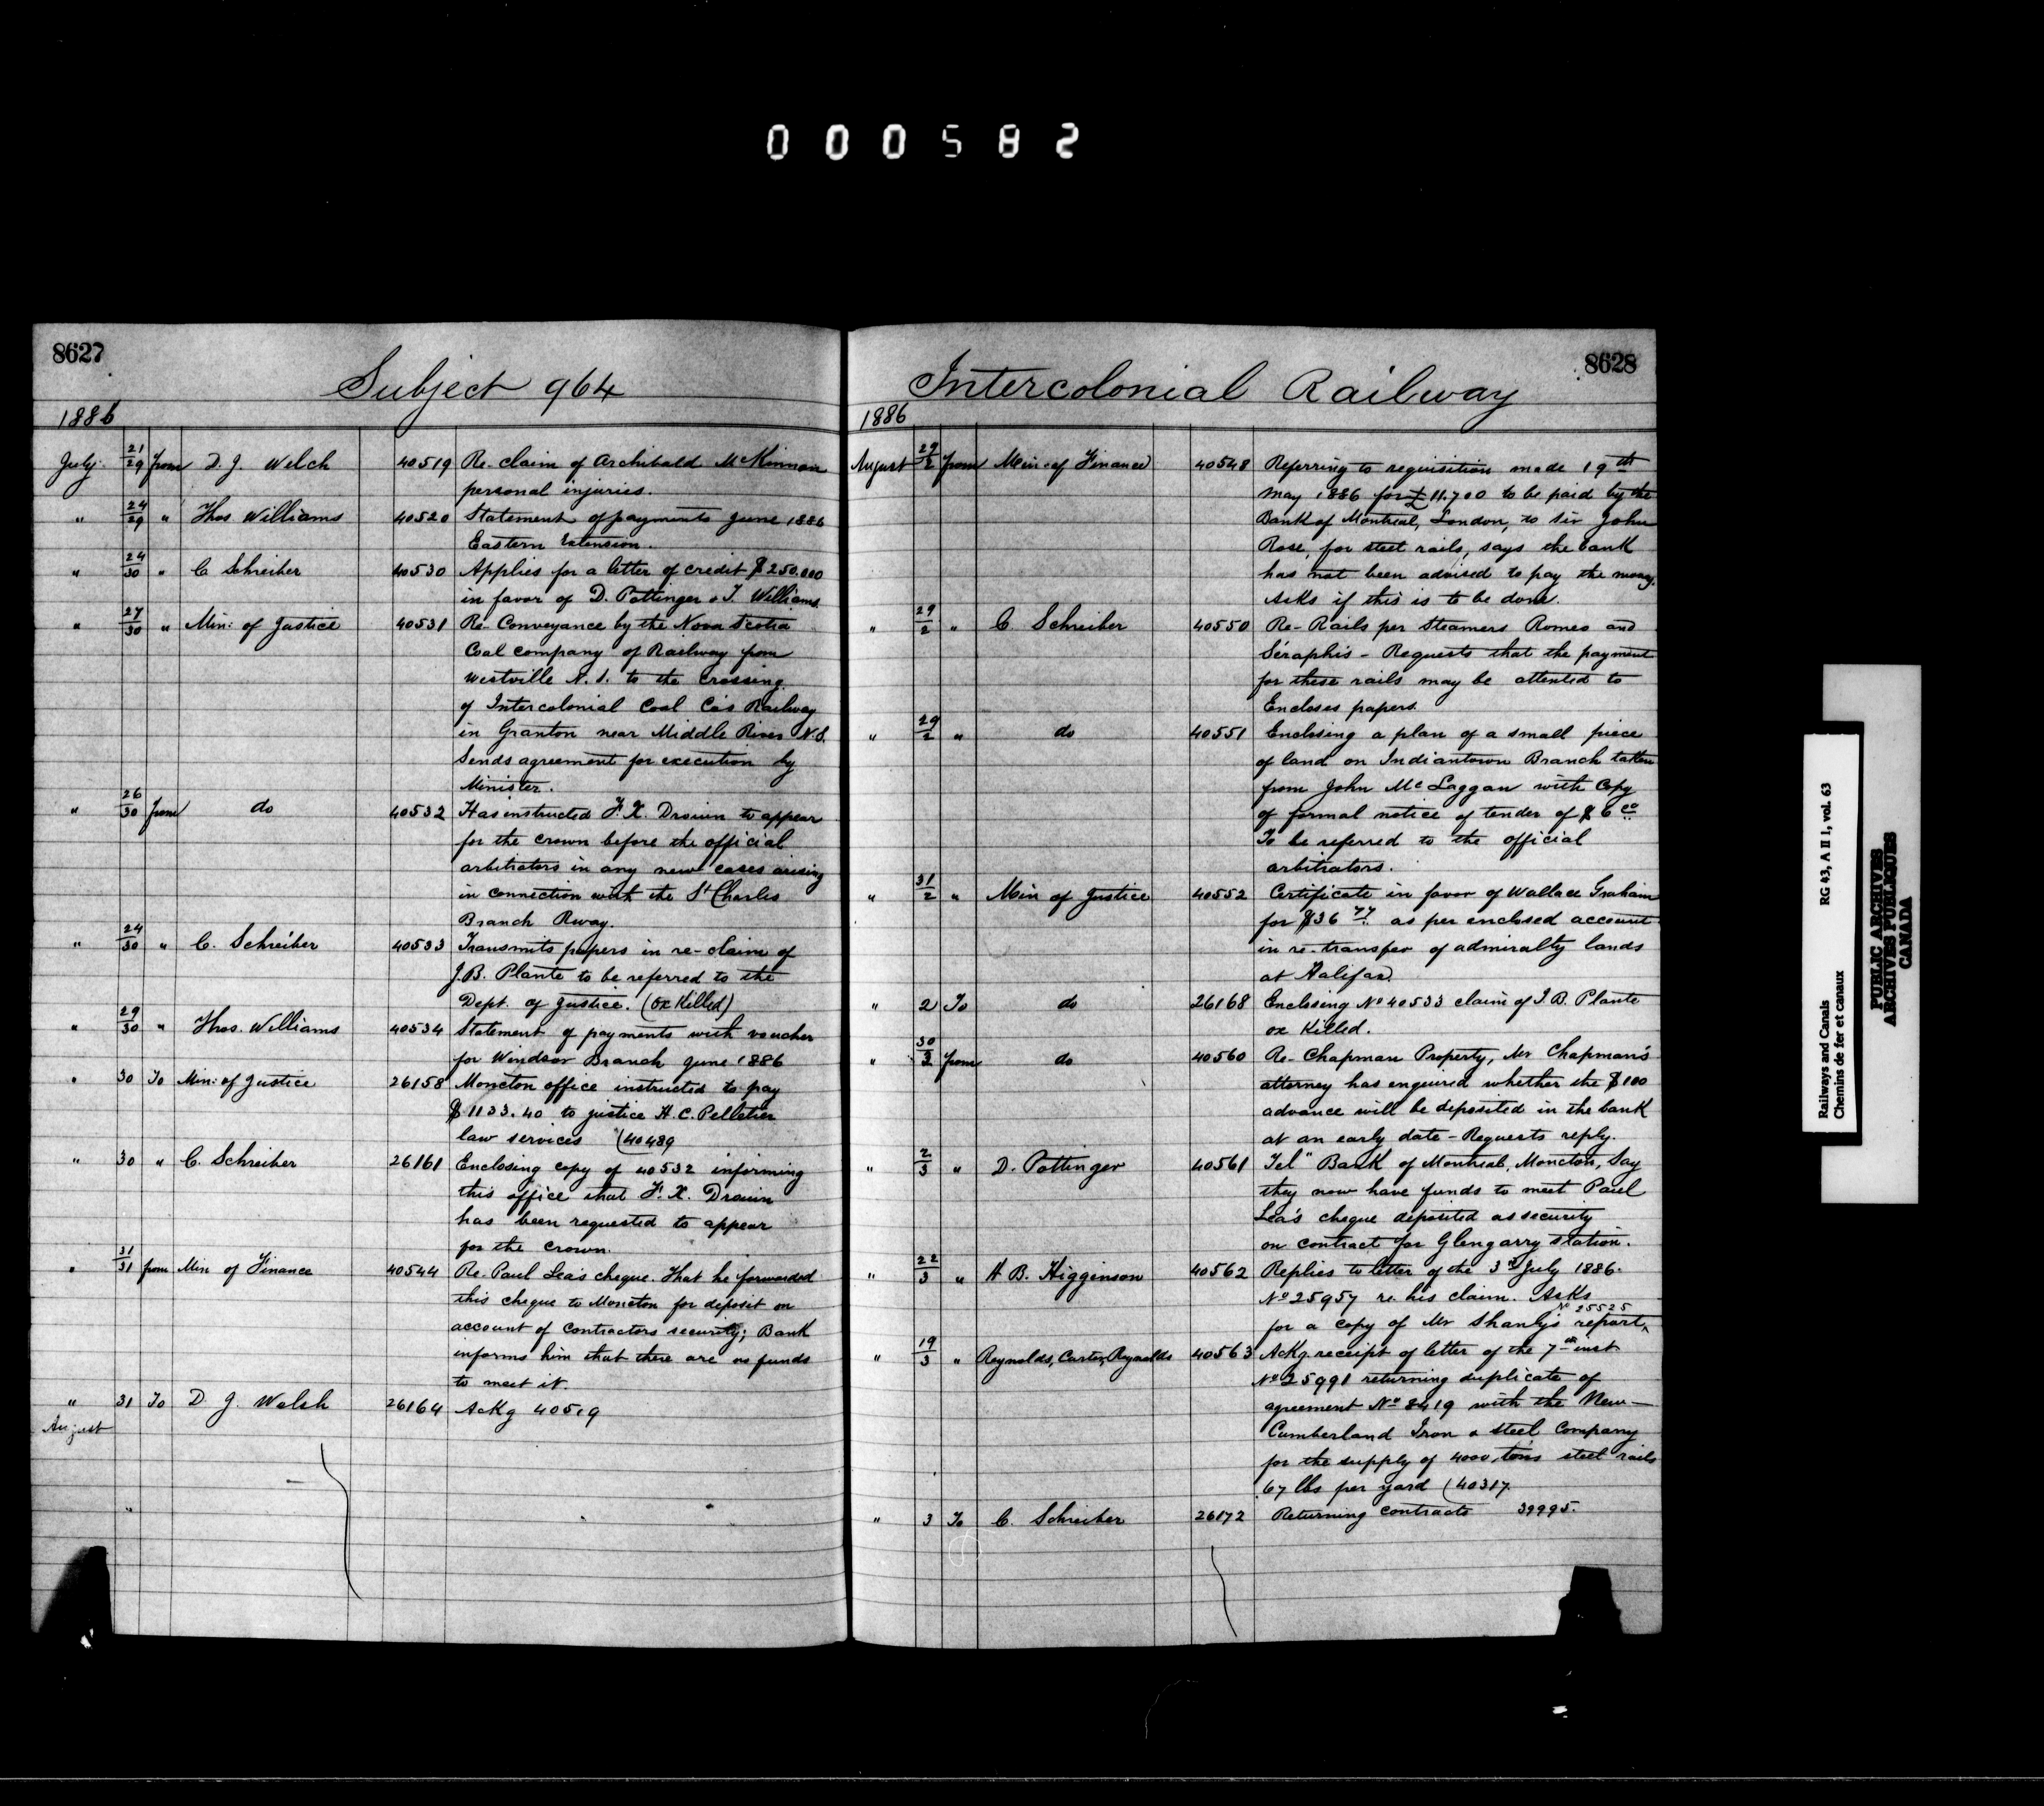 000582
8627
Subject 964
1886
July 21/29 from D. J. Welch 40519 Re claim of Archibald McKinnon
personal injuries.
" 24/29 " Thos. Williams 40520 Statement of payments June 1886
Eastern Extension.
" 24/30 " C Schreiber 40530 Applies for a letter of credit $250.000
in favor of D. Pottinger & T. Williams.
" 27/30 " Min: of Justice 40531 Re Conveyance by the Nova Scotia
Coal Company of Railway from
Westville N.S. to the Crossing
of Intercolonial Coal Co's Railway
in Granton near Middle River N.S.
Sends agreement for execution by
Minister.
" 26/30 from do 40532 Has instructed F. X. Drouin to appear
for the crown before the official
arbitrators in any new cases arising
in connection with the St Charles
Branch Rway.
" 24/30 " C. Schreiber 40533 Transmits papers in re-claim of
J.B. Plante to be referred to the
Dept. of Justice. (Ox Killed)
" 29/30 " Thos. Williams 40534 Statement of payments with voucher
for Windsor Branch June 1886
" 30 To Min: of Justice 26158 Moncton office instructed to pay
$1133.40 to justice H. C. Pelletier
law services (40489
" 30 " C. Schreiber 26161 Enclosing copy of 40532 informing
this office that F. X. Drouin
has been requested to appear
for the crown.
" 31/31 from Min of Finance 40544 Re-Paul Lea's cheque. That he forwarded
this cheque to Moncton for deposit on
account of Contractors security; Bank
informs him that there are no funds
to meet it.
" 31 To D J. Welsh 26164 Ackg 40519
August
"
8628
Intercolonial Railway
1886
August 29/2 from Min: of Finance 40548 Referring to requisition made 19th
May 1886 for £11.700 to be paid by the
Bank of Montreal, London, to Sir John
Rose, for steel rails, says the bank
has not been advised to pay the money.
Asks if this is to be done.
" 29/2 " C Schreiber 40550 Re-Rails per Steamers Romeo and
Seraphis - Requests that the payment
for these rails may be attented to
Encloses papers.
" 29/2 " do 40551 Enclosing a plan of a small piece
of land on Indiantown Branch taken
from John McLaggan with Copy
of formal notice of tender of $6 00
To be referred to the official
arbitrators.
" 31/2 " Min of Justice 40552 Certificate in favor of Wallace Graham
for $36 77 as per enclosed account
in re-transfer of admiralty lands
at Halifax.
" 2 To do 26168 Enclosing No 40533 claim of J. B. Plante
ox Killed.
" 30/3 from do 40560 Re-Chapman Property, Mr Chapman's
attorney has enquired whether the $100
advance will be deposited in the bank
at an early date - Requests reply.
" 2/3 " D. Pottinger 40561 Tel" Bank of Montreal, Moncton, Say
they now have funds to meet Paul
Lea's cheque deposited as security
on contract for Glengarry Station.
" 22/3 " H B. Higginson 40562 Replies to letter of the 3rd July 1886.
No 25957 re his claim. Asks
No 25525
for a copy of Mr Shanly's report ^
" 19/3 " Reynolds, Carter, Reynolds 40563 Ackg receipt of letter of the 7th inst
No 25991 returning duplicate of
agreement No 8419 with the New-
Cumberland Iron & Steel Company
for the supply of 4000 tons steel rails
67 lbs per yard (40317.
" 3 To C. Schreiber 26172 Returning Contracts 39995.
Railways and Canals RG 43, A II 1, vol. 63
Chemins de fer et canaux
PUBLIC ARCHIVES
ARCHIVES PUBLIQUES
CANADA